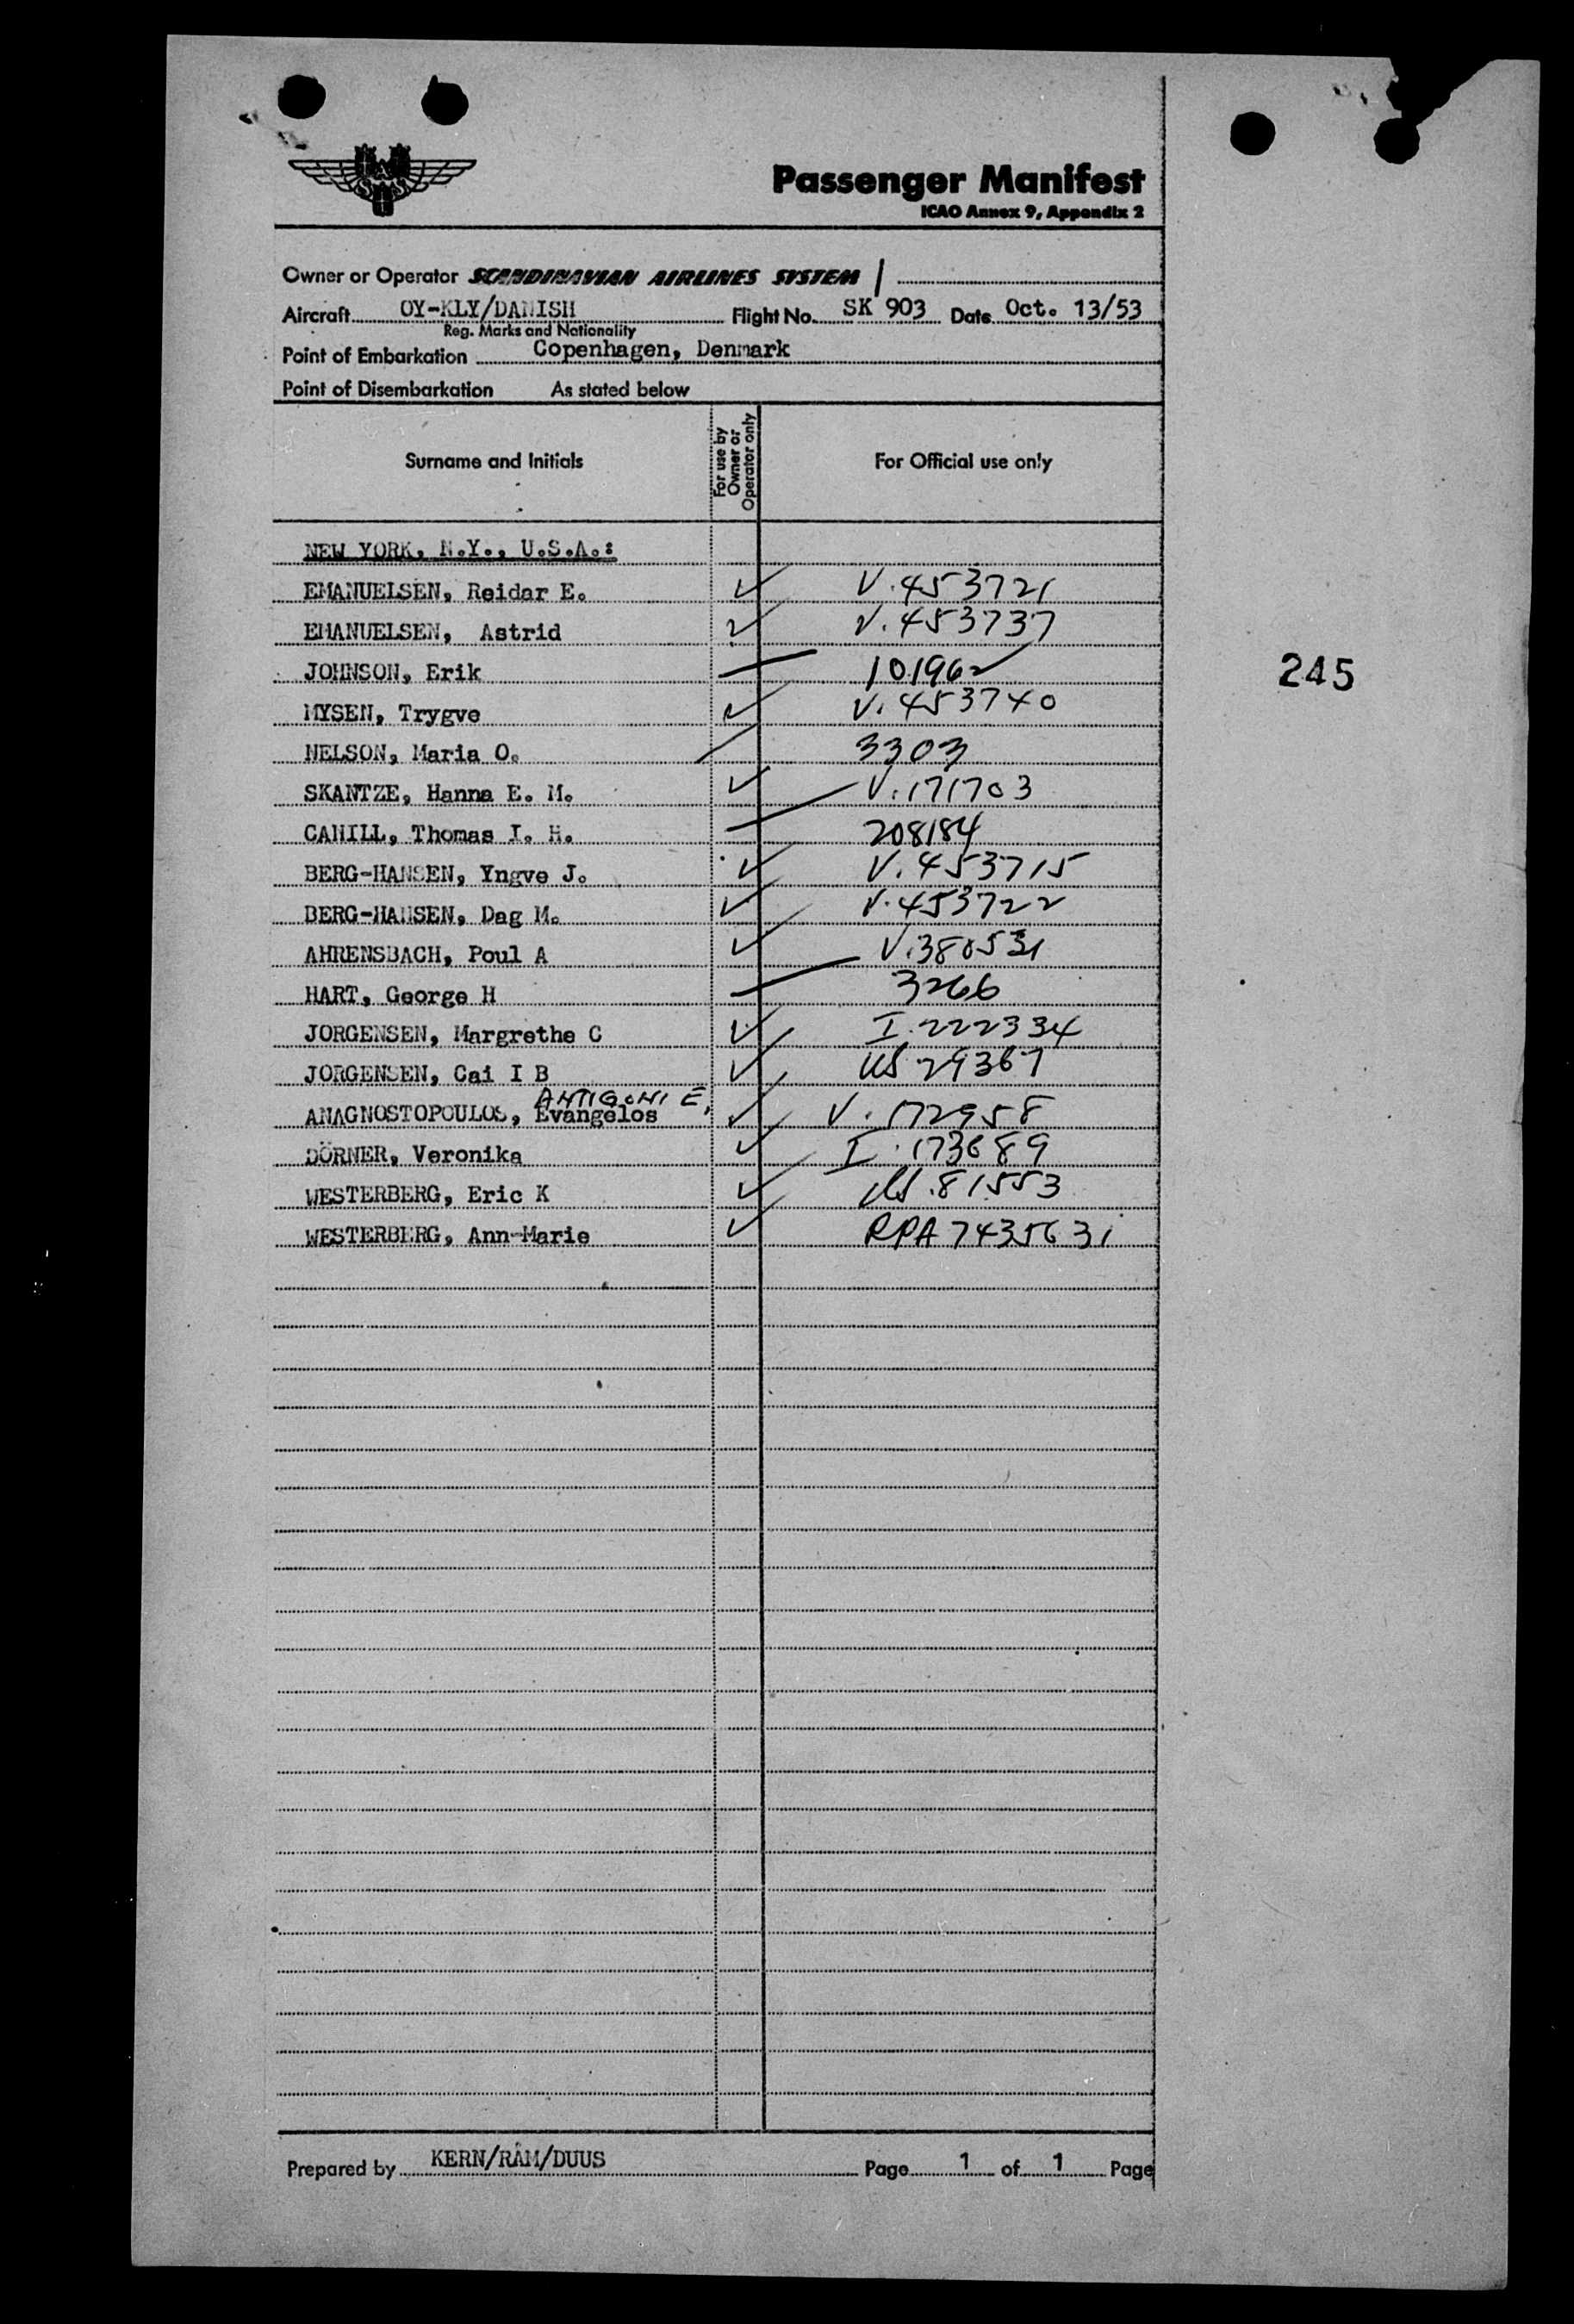 SAS
Passenger Manifest
ICAO Annex 9, Appendix 2
Owner or Operator SCANDINAVIAN AIRLINES SYSTEM /
Aircraft OY-KLY/DANISH Flight No. SK 903 Date Oct. 13/53
Reg. Marks and Nationality
Point of Embarkation Copenhagen, Denmark
Point of Disembarkation As stated below
Surname and Initials For use by Owner or Operator only For Official use only
NEW YORK, N.Y., U.S.A.:
EMANUELSEN, Reidar E. ✓ V.453721
EMANUELSEN, Astrid ✓ V.453737
JOHNSON, Erik — 101962
245
MYSEN, Trygve ✓ V.453740
NELSON, Maria O. 3303
SKANTZE, Hanna E. M. ✓ V.171703
CAHILL, Thomas I. H. — 208184
BERG-HANSEN, Yngve J. ✓ V.453715
BERG-HANSEN, Dag M. ✓ V.453722
AHRENSBACH, Poul A ✓ V.380531
HART, George H — 3266
JORGENSEN, Margrethe C ✓ I.222334
JORGENSEN, Cai I B ✓ US 29367
ANTIGONI E,
ANAGNOSTOPOULOS, Evangelos ✓ V.172958
DÖRNER, Veronika ✓ I.173689
WESTERBERG, Eric K ✓ US.81553
WESTERBERG, Ann-Marie ✓ RPA 7435631
Prepared by KERN/RÅM/DUUS Page 1 of 1 Page